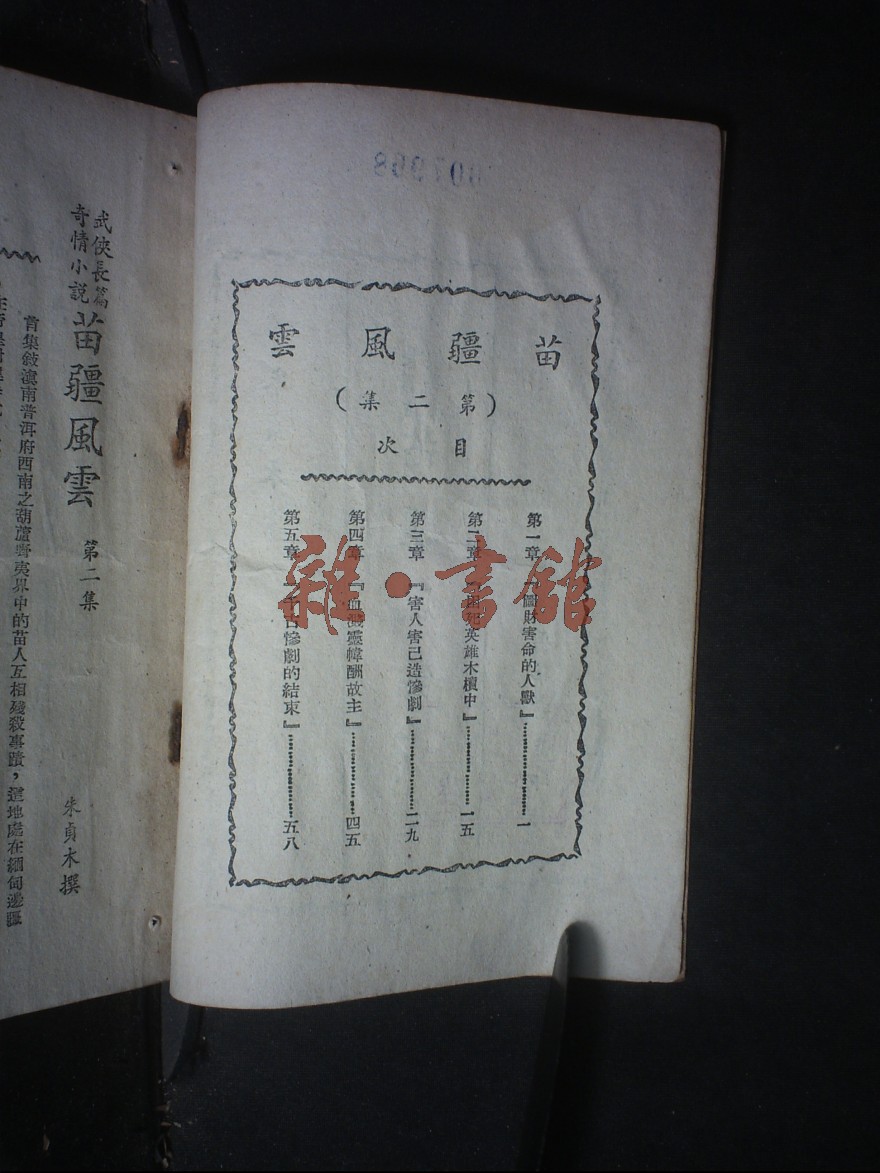 苗疆風雲
（第二集）
目次
第一章　『圖財害命的人獸』……………一
第二章　『困死英雄木櫝中』……………一五
第三章　『害人害己造慘劇』……………二九
第四章　『血濺靈幃酬故主』……………四五
第五章　『千古慘劇的結束』……………五八
雜·書館
武俠長篇
奇情小説
苗疆風雲　第二集
朱貞木撰
首集敘滇南普洱府西南之葫蘆野夷界中的苗人互相殘殺事蹟，這地處在緬甸邊